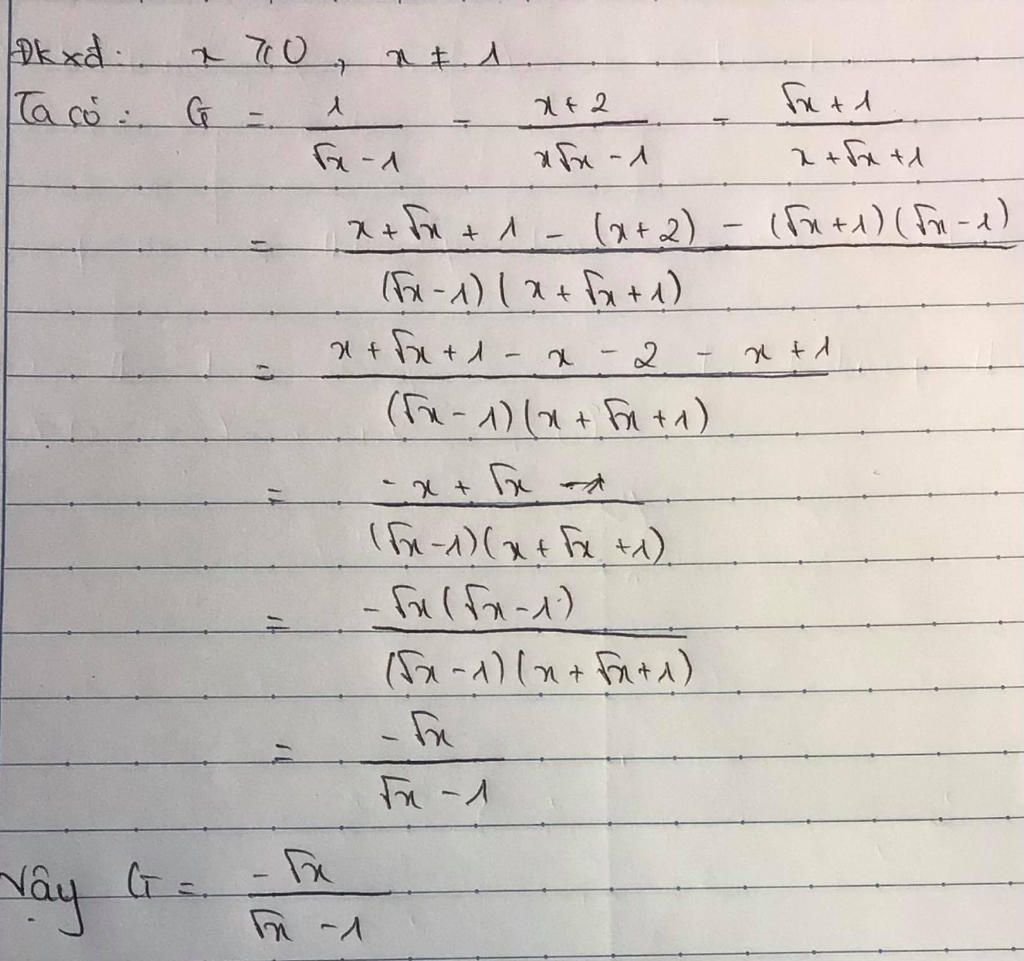 Đkxđ: x ≥ 0, x ≠ 1
Ta có: G = 1/(√x - 1) - (x + 2)/(x√x - 1) - (√x + 1)/(x + √x + 1)
= (x + √x + 1 - (x + 2) - (√x + 1)(√x - 1))/((√x - 1)(x + √x + 1))
= (x + √x + 1 - x - 2 - x + 1)/((√x - 1)(x + √x + 1))
= (-x + √x)/((√x - 1)(x + √x + 1))
= (-√x(√x - 1))/((√x - 1)(x + √x + 1))
= (-√x)/(√x - 1)
Vậy G = (-√x)/(√x - 1)